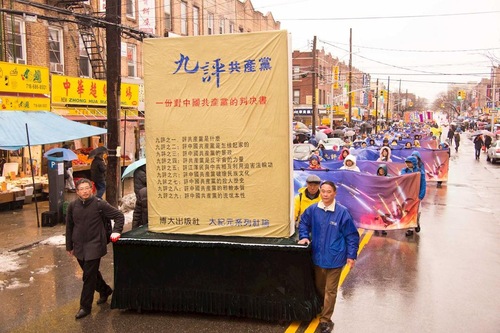 九評共產黨
一份對中國共產黨的判決書
九評之一：評共產黨是什麼
九評之二：評中國共產黨是怎樣起家的
九評之三：評中國共產黨的暴政
九評之四：評共產黨是反宇宙的力量
九評之五：評江澤民與中共相互利用迫害法輪功
九評之六：評中國共產黨破壞民族文化
九評之七：評中國共產黨的殺人歷史
九評之八：評中國共產黨的邪教本質
九評之九：評中國共產黨的流氓本性
博大出版社 大紀元系列社論
中華
ZHONG HUA